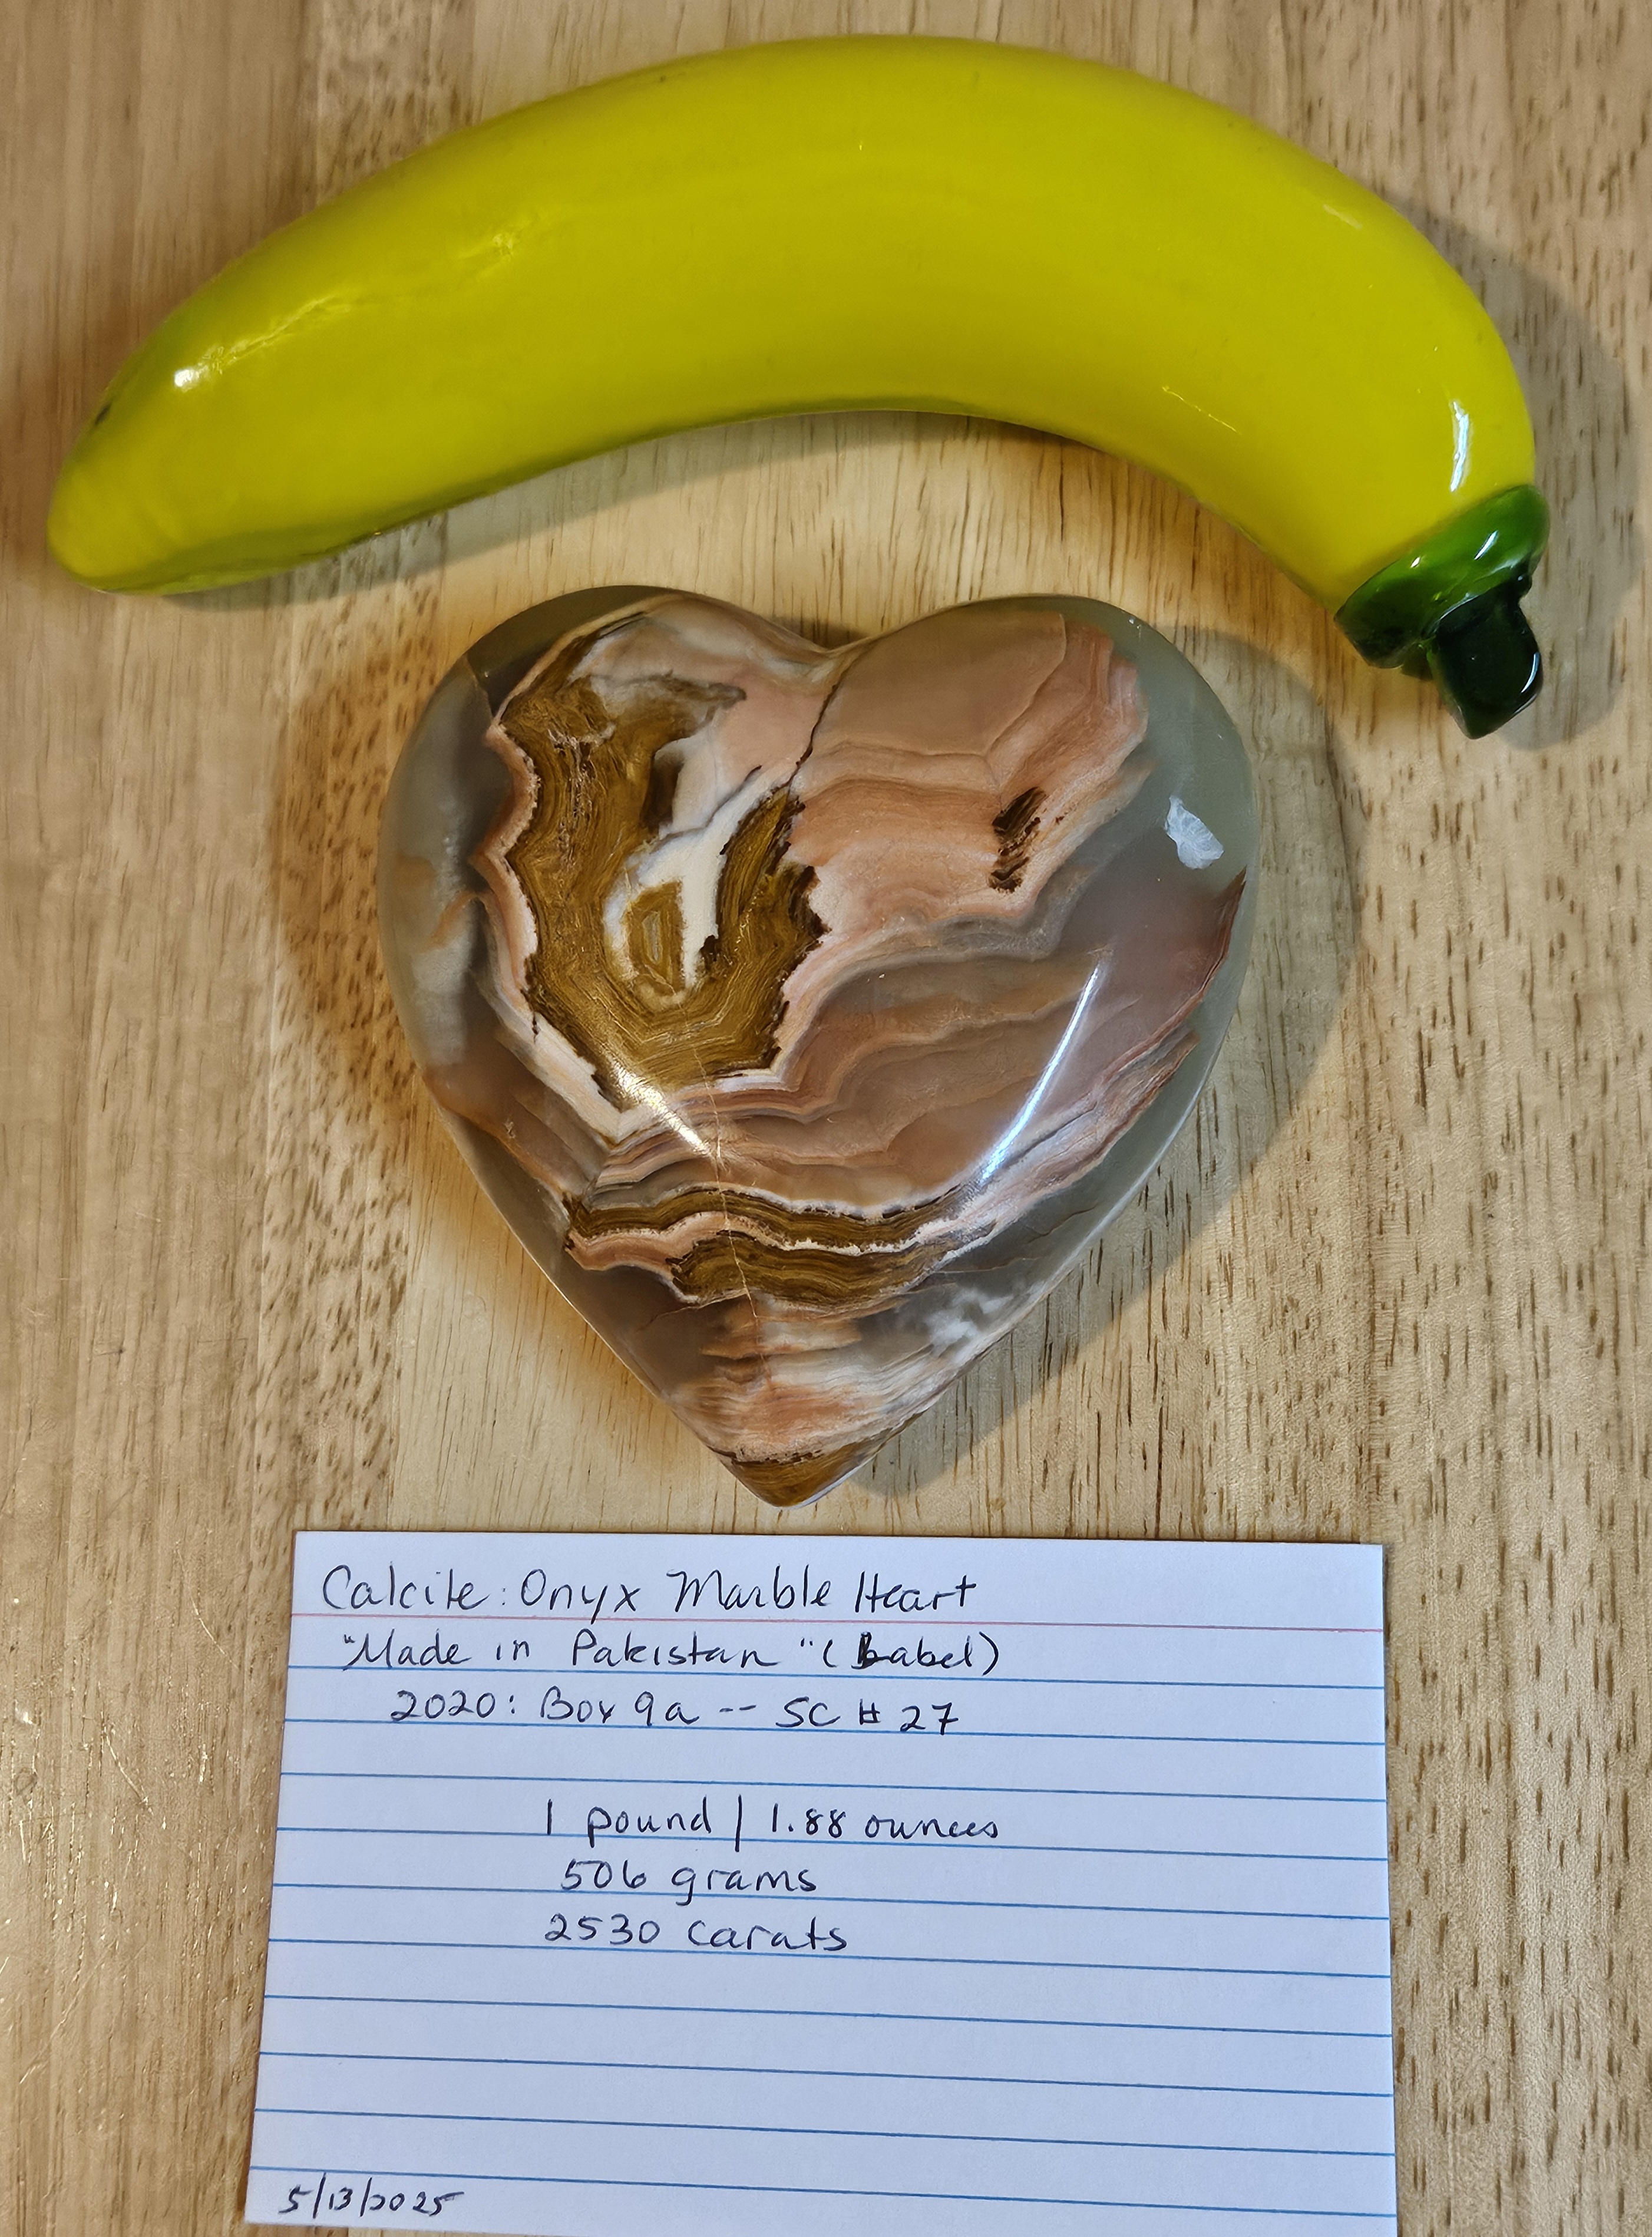 Calcite: Onyx Marble Heart
"Made in Pakistan" (Label)
2020: Box 9a -- SC # 27
1 pound | 1.88 ounces
506 grams
2530 carats
5/13/2025